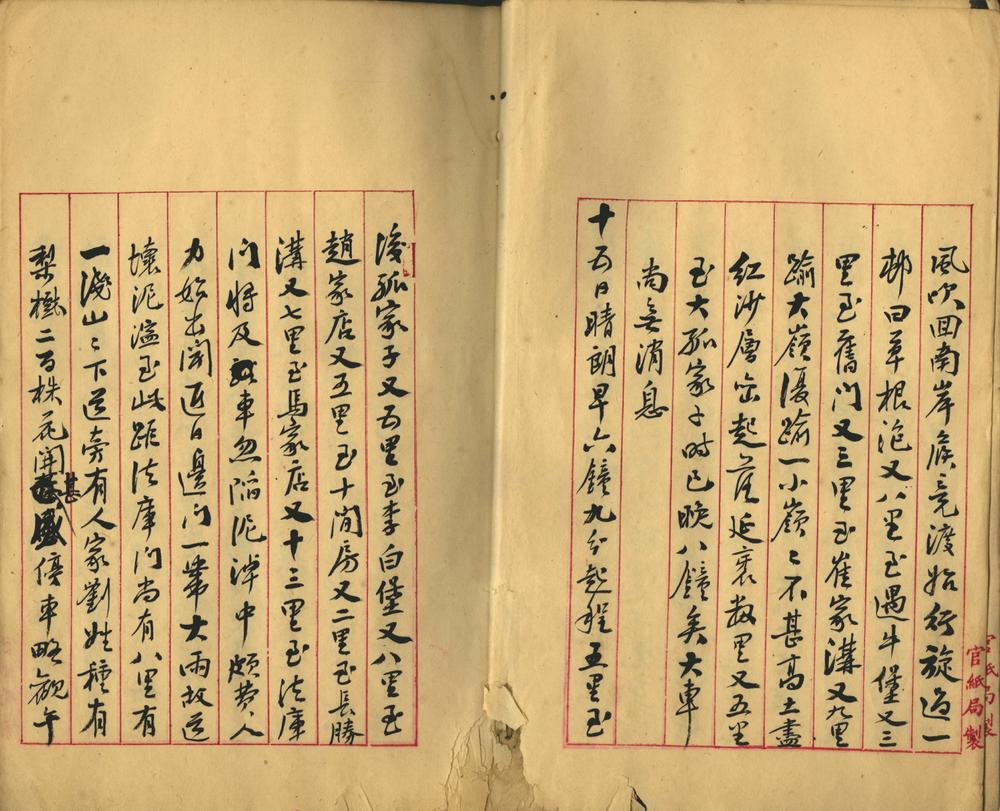 風吹回南岸候竟渡始行旋過一
邨曰草根泡又八里至遇牛堡又三
里至舊門又三里至崔家溝又九里
踰大嶺復踰一小嶺〻不甚高土盡
紅沙層巒起落延袤數里又五里
至大孤家子時已晚八鐘矣大車
尚無消息
十五日晴朗早六鐘九分起程五里至
後孤家子又五里至李白堡又八里至
趙家店又五里至十間房又二里至長勝
溝又七里至馬家店又十三里至法庫
門將及車忽陷泥淖中頗費人
力始出聞近日邊門一帶大雨故道
壞泥濫至此距法庫門尚有八里有
一淺山〻下道旁有人家劉姓種有
梨樹二百株花開甚盛停車略觀午
官紙局製
官紙局製